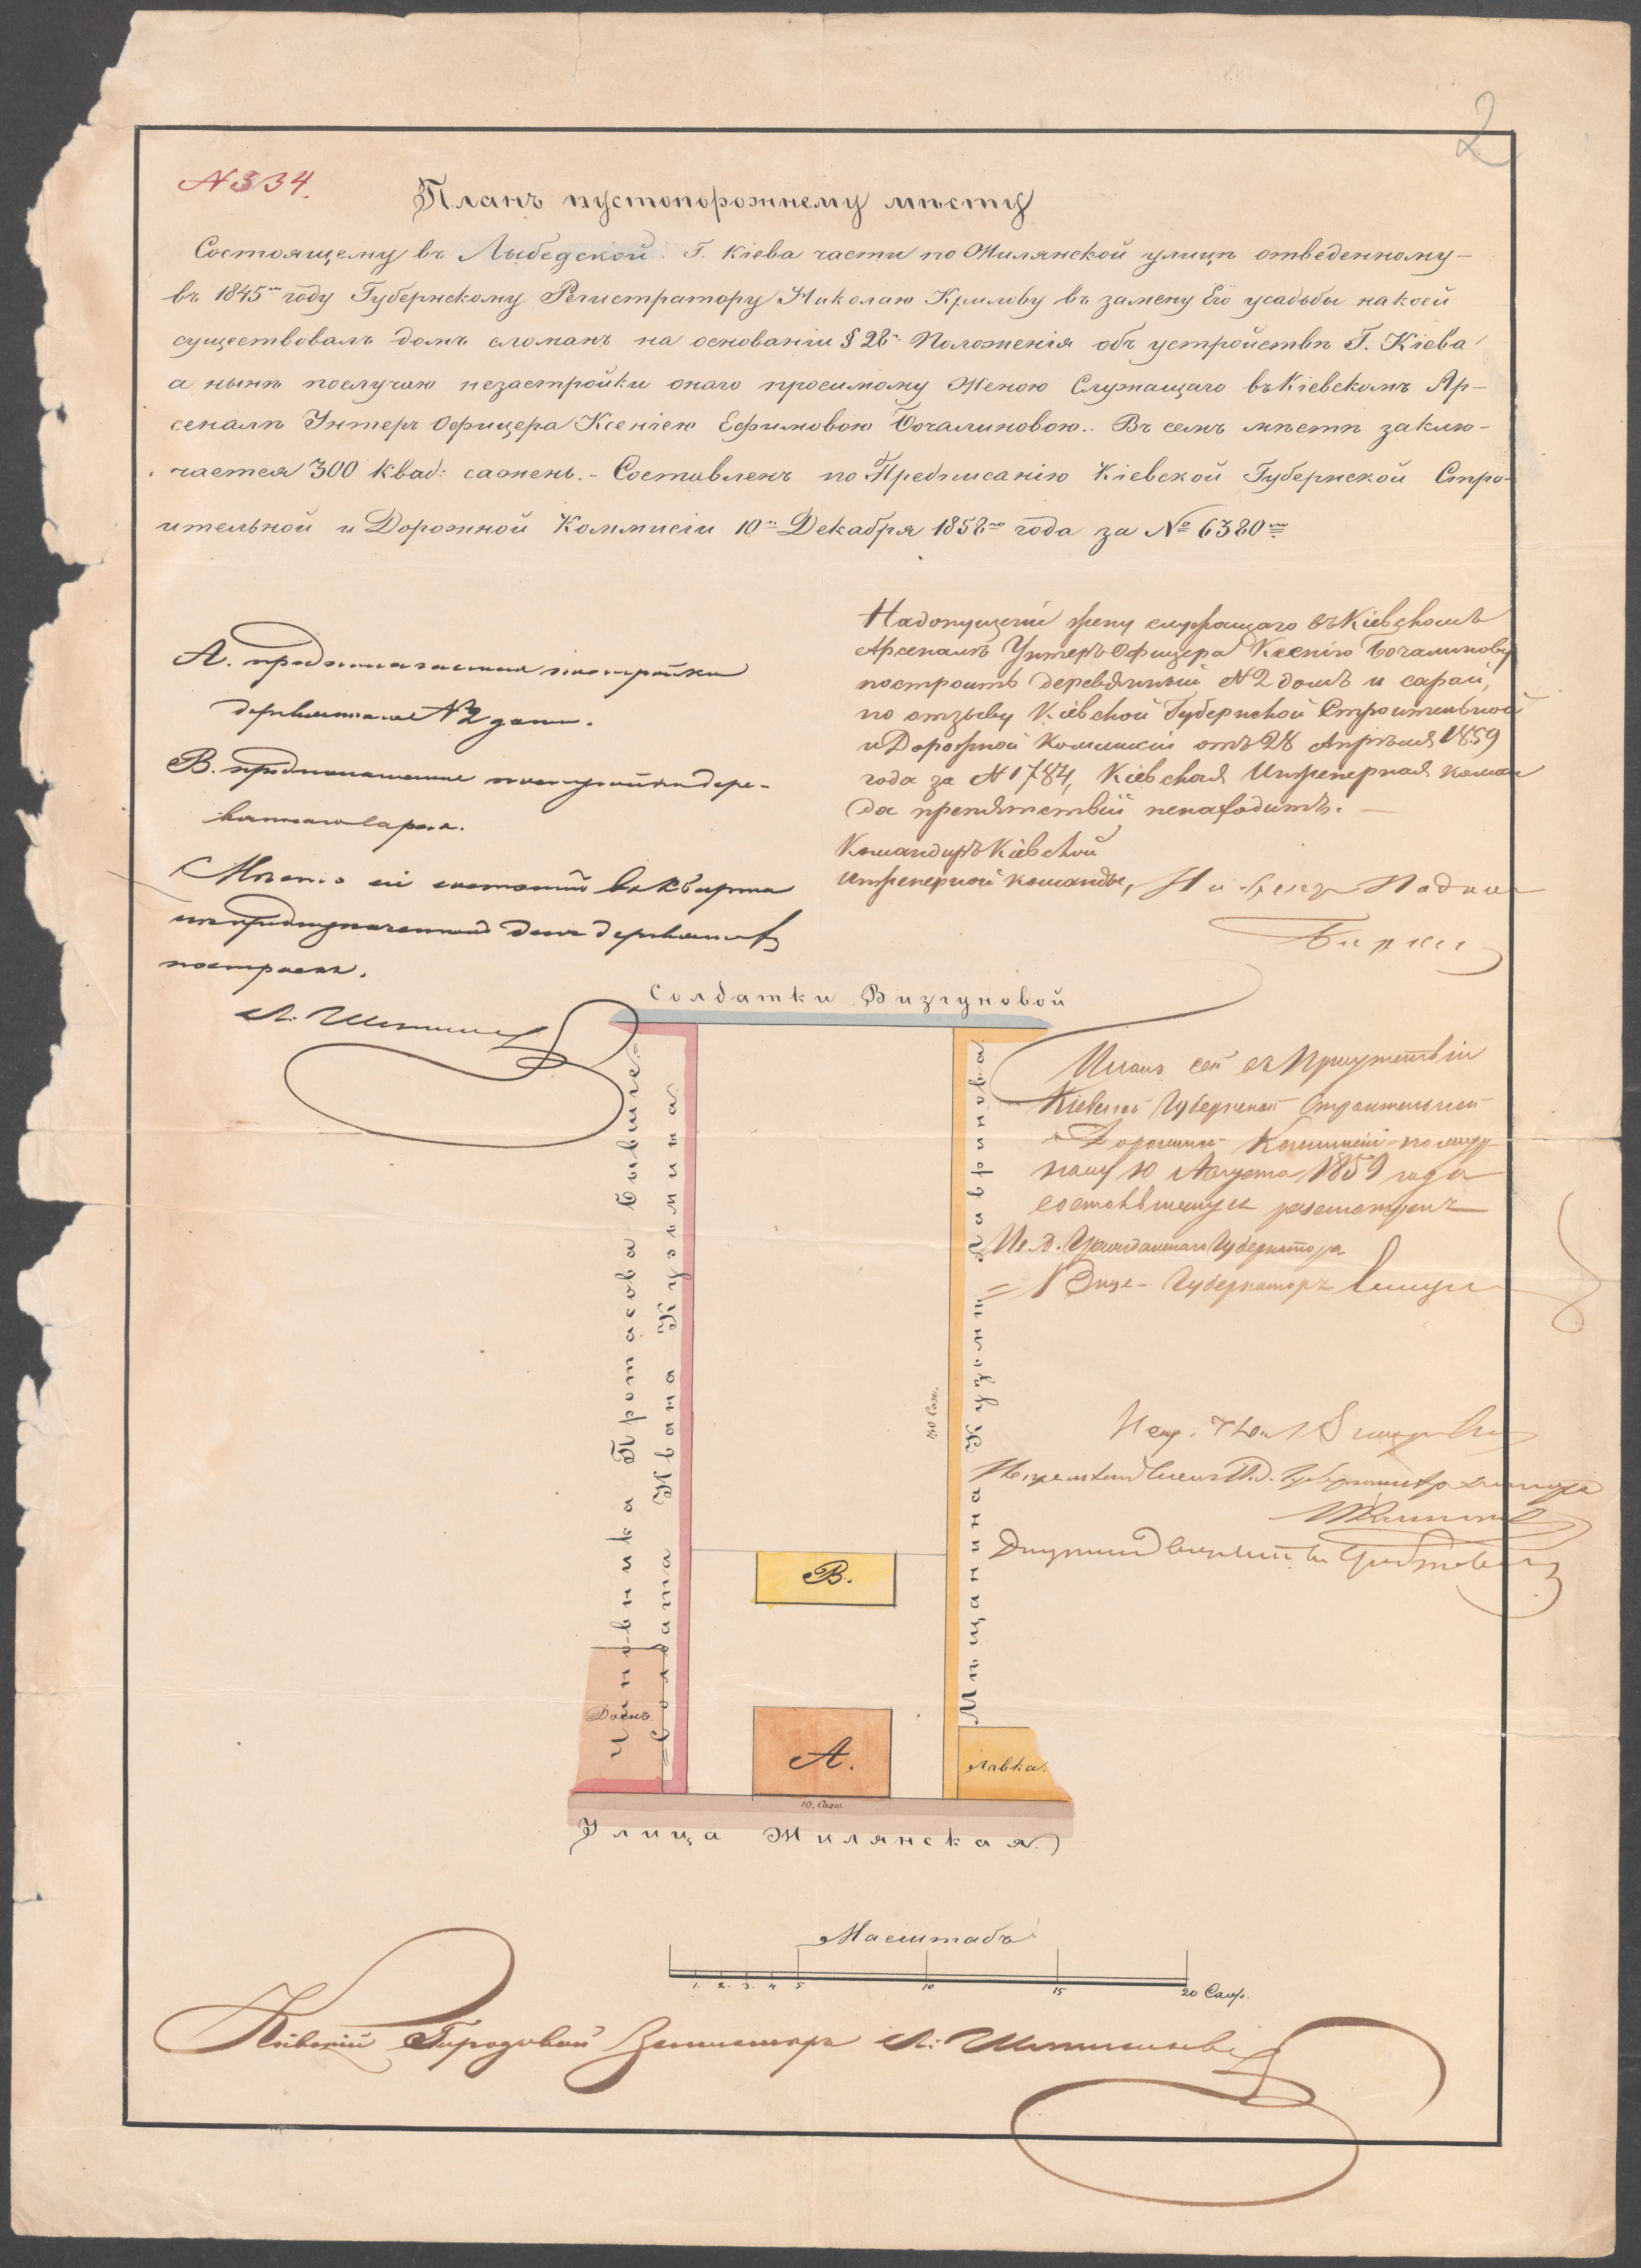 2
№ 334.
Планъ пустопорожнему мѣсту
Состоящему въ Лыбедской Г. Кіева части по Жилянской улицѣ отведенному
въ 1845мъ году Губернскому Регистратору Николаю Крилову въ замену Его усадьбы на коей
существовалъ домъ сломанъ на основаніи § 28го Положенія объ устройствѣ Г. Кіева
а нынѣ послучаю незастройки онаго просимому Женою Служащаго въ Кіевскомъ Ар-
сеналѣ Унтеръ Офицера Ксеніею Ефимовою Бочалиновою. Въ семъ мѣстѣ заклю-
чается 300 квад: сажень. - Составленъ по Предписанію Кіевской Губернской Стро-
ительной и Дорожной Коммисіи 10го Декабря 1858го года за № 6380мъ
А. предполагаемая постройка
деревяннаго №2 дома.
В. предполагаемая постройка дере-
вяннаго сарая.
Мѣсто сіе состоитъ въ квартал
предназначенномъ для деревянныхъ
построекъ.
Надопущеніе жену служащаго въ Кіевскомъ
Арсеналѣ Унтеръ-Офицера Ксенію Бочалинову
построить деревянный №2 домъ и сарай,
по отзыву Кіевской Губернской Строительной
и Дорожной Коммисіи отъ 28 Апрѣля 1859
года за №1784, Кіевская Инженерная коман
да препятствій ненаходитъ. —
Командиръ Кіевской
Инженерной команды,
Солдатки Визгуновой
Чиновника Протасова бывшее=
=Солдата Ивана Кузьмина
Мѣщанина Кузьмы Лавринова
30 Саж.
Планъ сей въ Присутствіи
Кіевской Губернской Строительной
и Дорожной Коммисіи по жур
налу 10 Августа 1859 года
состоявшемуся разсмотренъ
И. Д. Гражданскаго Губернатора
= Вице-Губернаторъ
В.
Домъ.
А.
Лавка.
10. Саж.
Улица Жилянская
Масштабъ
1. 2. 3. 4 5 10 15 20 Саж.
Кіевскій Городовой Землемѣръ